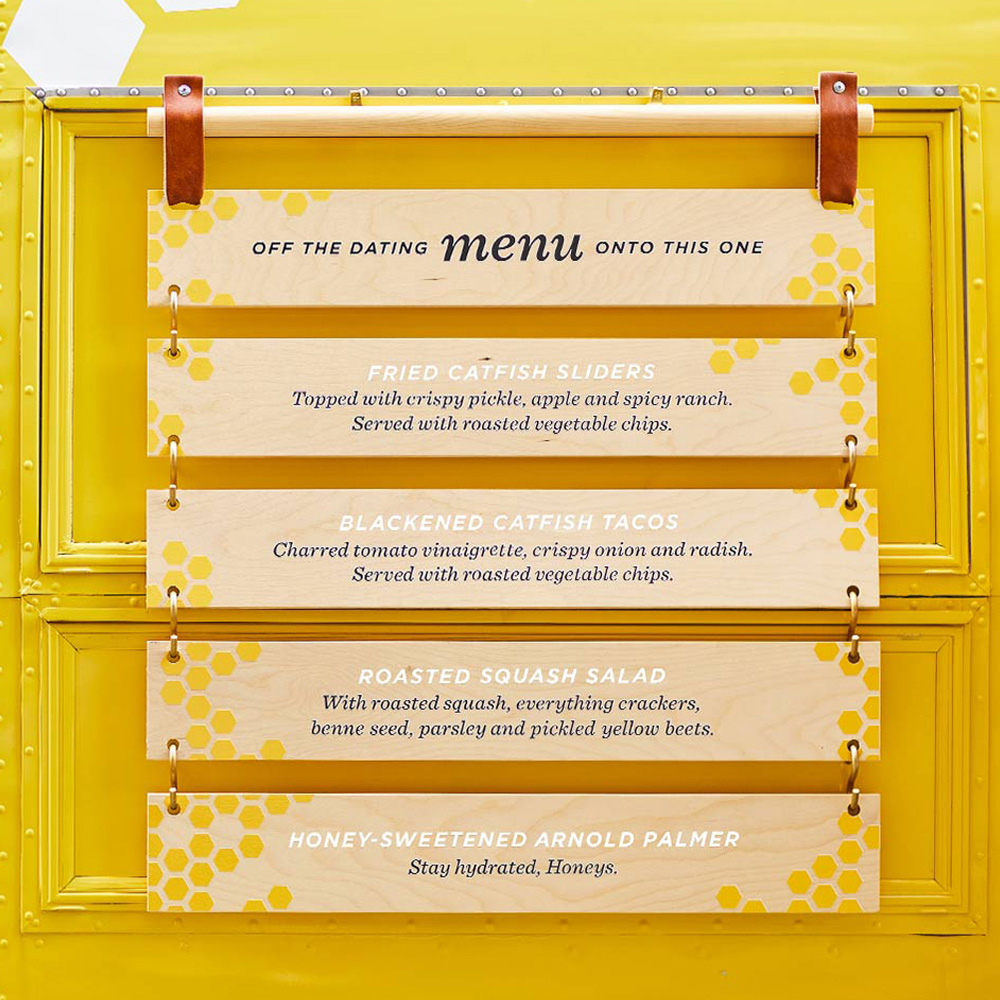 OFF THE DATING menu ONTO THIS ONE
FRIED CATFISH SLIDERS
Topped with crispy pickle, apple and spicy ranch.
Served with roasted vegetable chips.
BLACKENED CATFISH TACOS
Charred tomato vinaigrette, crispy onion and radish.
Served with roasted vegetable chips.
ROASTED SQUASH SALAD
With roasted squash, everything crackers,
benne seed, parsley and pickled yellow beets.
HONEY-SWEETENED ARNOLD PALMER
Stay hydrated, Honeys.